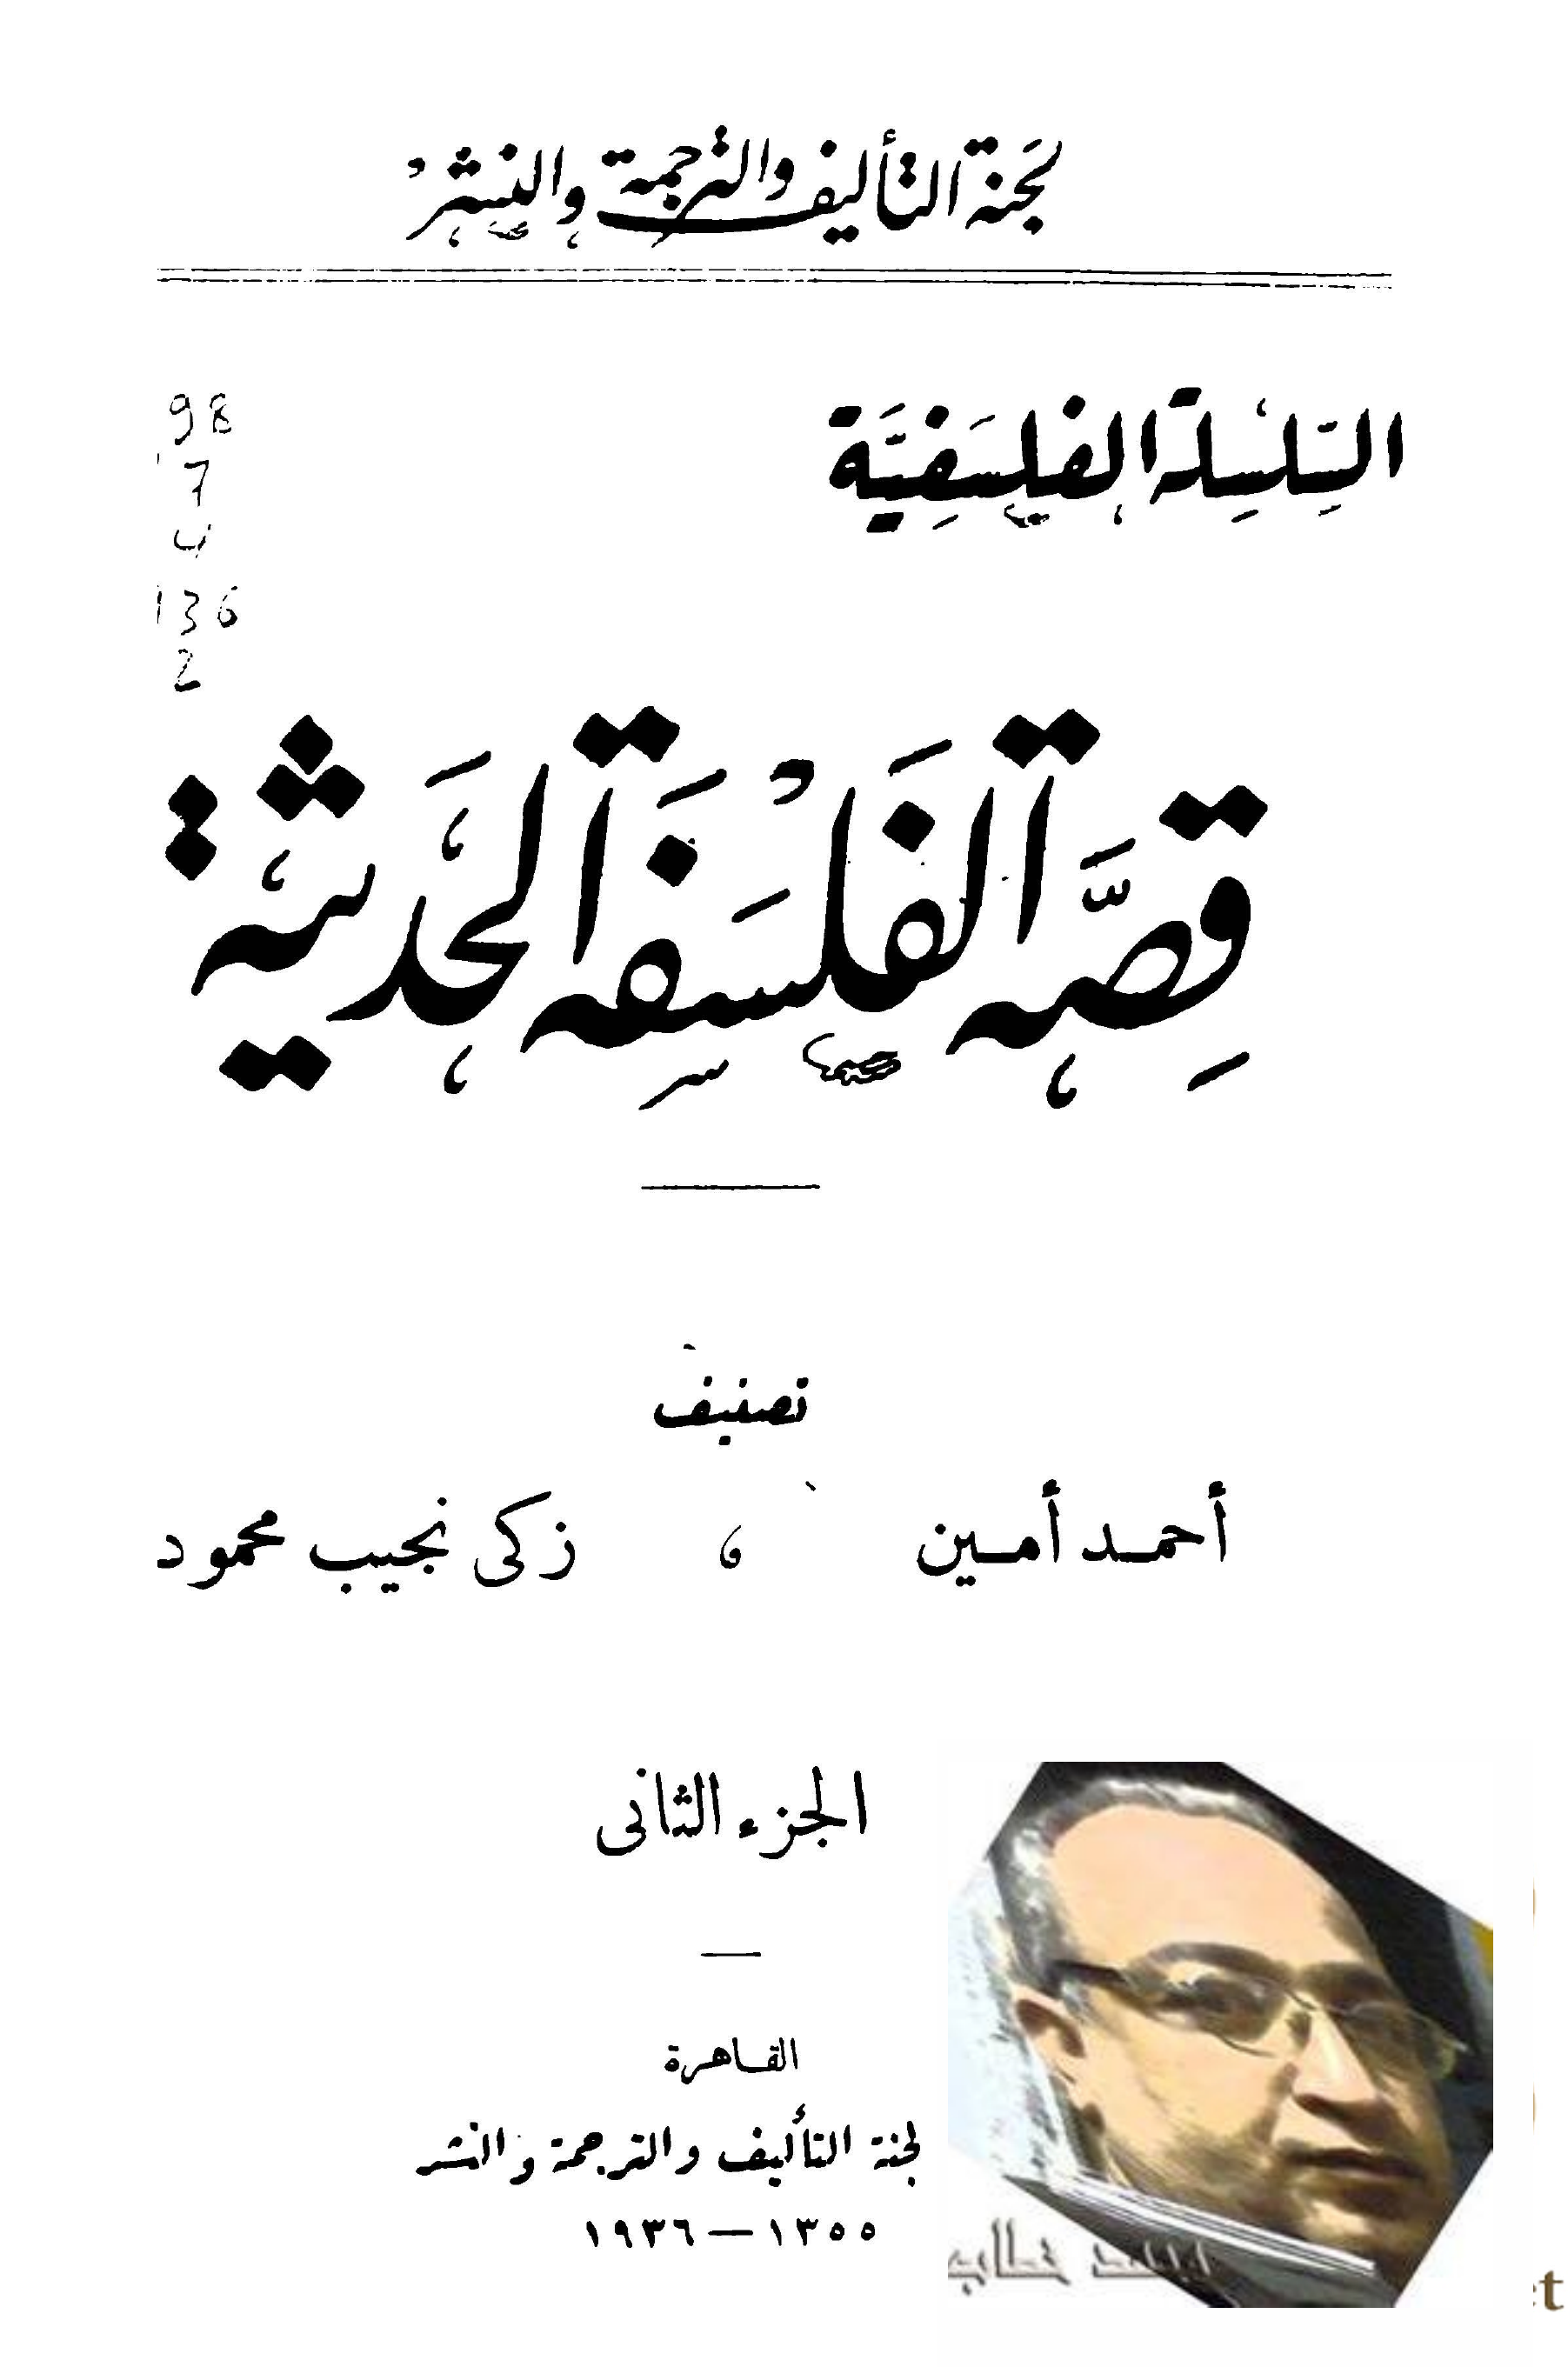 لجنة التأليف والترجمة والنشر
السلسلة الفلسفية
98
7
136
2
قصة الفلسفة الحديثة
تصنيف
أحمد أمين و زكى نجيب محمود
الجزء الثانى
القاهرة
لجنة التأليف والترجمة والنشر
١٣٥٥ — ١٩٣٦